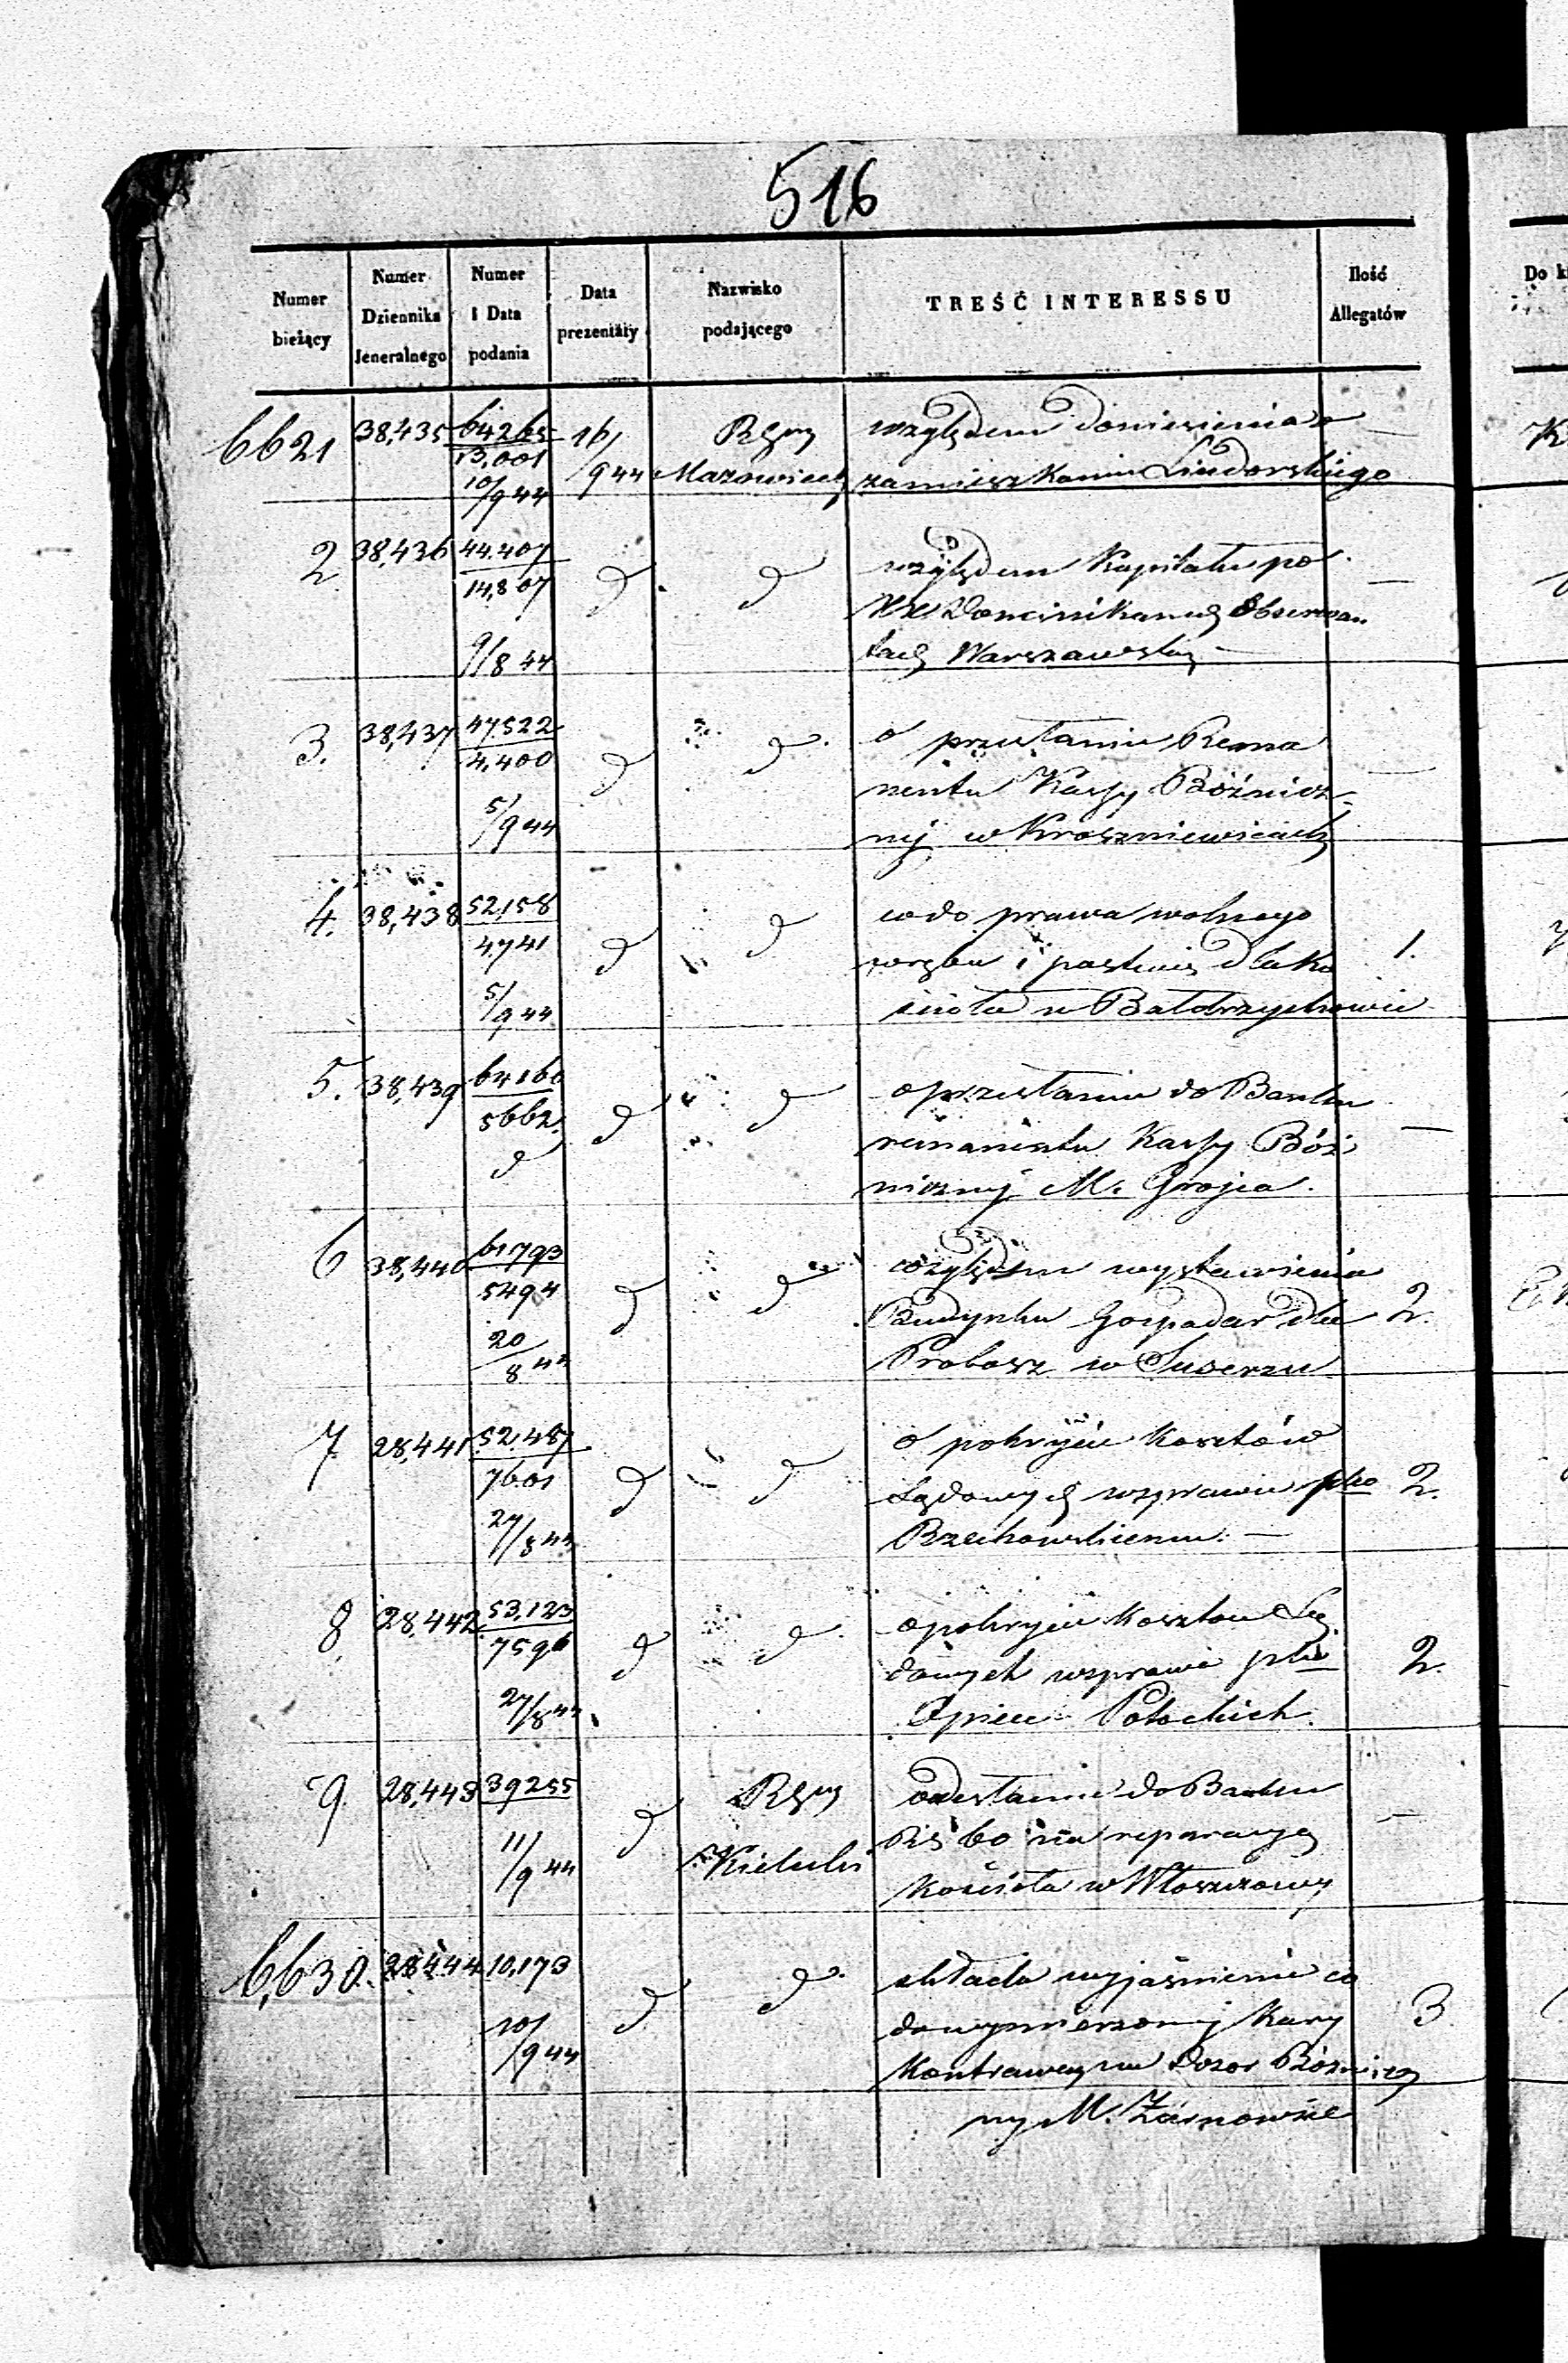 516
Numer bieżący | Numer Dziennika Jeneralnego | Numer i Data podania | Data prezentaty | Nazwisko podającego | TREŚĆ INTERESSU | Ilość Allegatów
6621 | 38,435 | 64265 / 13,001 10/9 44 | 16/9 44 | Mazowiec | względem doniesienia o
zamieszkaniu Lindorskiego
2 | 38,436 | 44.407 / 14,807 9/8 44 | d | d | względem Kapitału po
XX Dominikanach Obserwan
tach Warszawskich —
3. | 38,437 | 47522 / 4,400 5/9 44 | d | d. | o przesłaniu Rema
nentu Kassy Bóżnicz-
nej w Krośniewicach
4. | 38,438 | 52,158 / 4,741 5/9 44 | d | d | co do prawa wolnego | 1.
wrębu i pastwis dla Ko
ścioła w Bałdrzychowie
5. | 38,439 | 64160 / 5662. d | d | d | o przesłaniu do Banku | —
remanentu Kassy Bóż
nicznej M. Grojca.
6 | 38,440 | 61793 / 5494 20/8 44 | d | d | względem wystawienia
Budynku Gospodar dla | 2.
Probosz w Suserzu
7 | 28,441 | 52.487 / 7601 27/8 44 | d | d | o pokrycie kosztów
Sądowych wsprawie pko | 2.
Brzechowskiemu. —
8. | 28,442 | 53,123 / 7596 27/8 44 | d | d. | o pokrycie kosztow Są
dowych wsprawie pko | 2.
Opiece Potockich.
9. | 28,443 | 39255 11/9 44 | d | Kielecki | odesłanie do Banku | —
60 na reparacyę
Kościoła w Włoszczowy
6,630. | 28444 | 10,173 10/9 44 | d | d. | składa wyjaśnienie co
do wymierzonej Kary | 3
Dozor Bóżnicz
ny M. Żarnowie
Do k